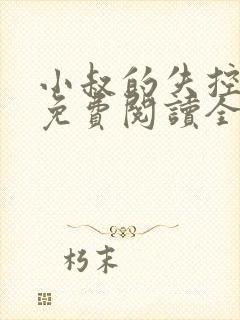 小叔的失控
免費閱讀全
朽末